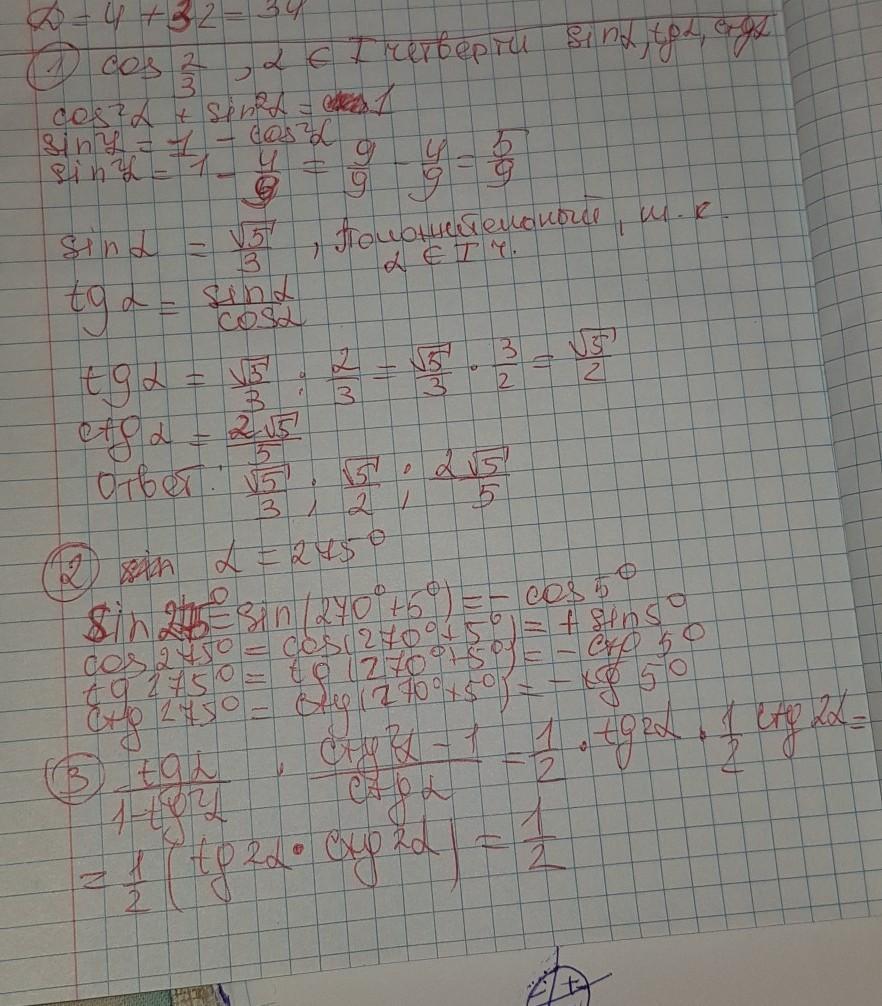 D = 4 + 32 = 34
① cos 2/3, α ∈ I четверти sinα, tgα, ctgα
cos²α + sin²α = 1
sin²α = 1 - cos²α
sin²α = 1 - 4/9 = 9/9 - 4/9 = 5/9
sin α = √5/3, положительный, т.к.
α ∈ I ч.
tg α = sinα/cosα
tg α = √5/3 : 2/3 = √5/3 · 3/2 = √5/2
ctg α = 2√5/5
Ответ: √5/3; √5/2; 2√5/5
② α = 275°
sin 275° = sin(270° + 5°) = - cos 5°
cos 275° = cos(270° + 5°) = + sin 5°
tg 275° = tg(270° + 5°) = - ctg 5°
ctg 275° = ctg(270° + 5°) = - tg 5°
③ tgα/(1 - tg²α) · (ctg²α - 1)/ctgα = 1/2 · tg2α · 1/2 ctg 2α =
= 1/2 (tg 2α · ctg 2α) = 1/2
- +